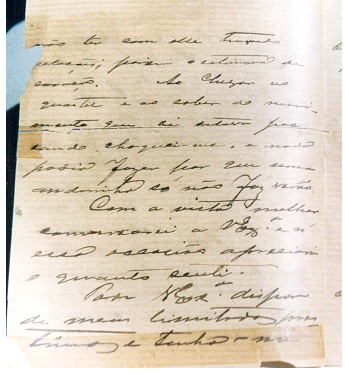 não ter com elle
relações, porem o estimava de
coração. Ao chegar no
quartel e ao saber do movi-
mento que ai estava pas
sando choquei-me, e nada
podia fazer por que uma
andorinha só não faz verão
Com a vista melhor
conversarei a VEx.ª e n'
essa occasião apreciará
o quanto senti.
Pode VEx.ª dispor
de meus limitados pres
timos e tenha-me